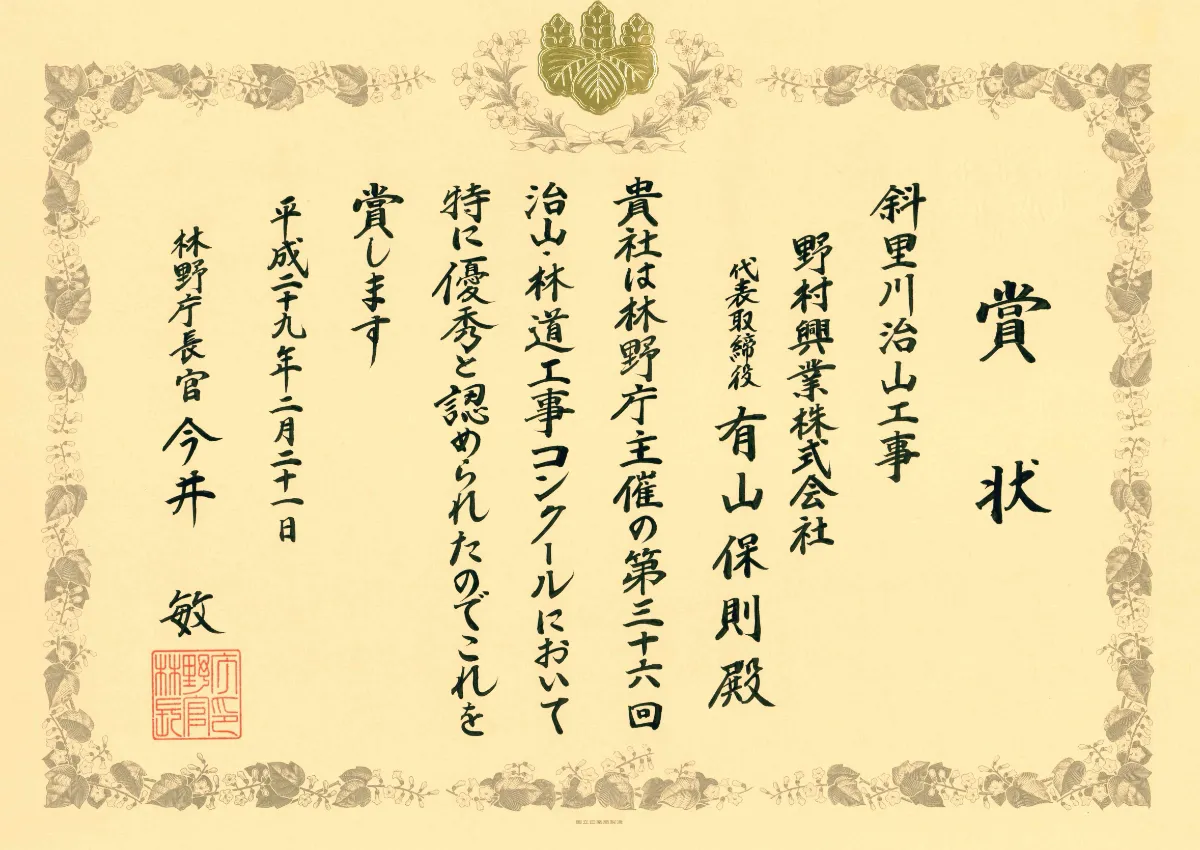 賞状
斜里川治山工事
野村興業株式会社
代表取締役 有山保則殿
貴社は林野庁主催の第三十六回
治山・林道工事コンクールにおいて
特に優秀と認められたのでこれを
賞します
平成二十九年二月二十一日
林野庁長官 今井 敏